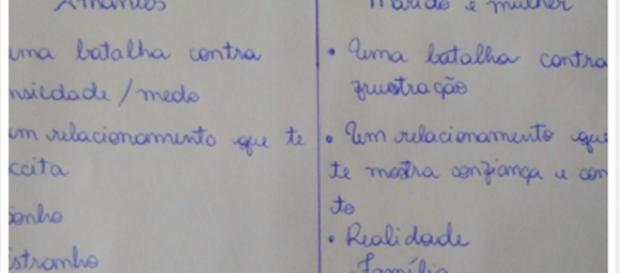 Amantes
uma batalha contra
nsiedade/medo
um relacionamento que te
xcita
sonho
stranho
Marido e mulher
• Uma batalha contra
frustração
• Um relacionamento que
te mostra confiança e con
to
• Realidade
Família